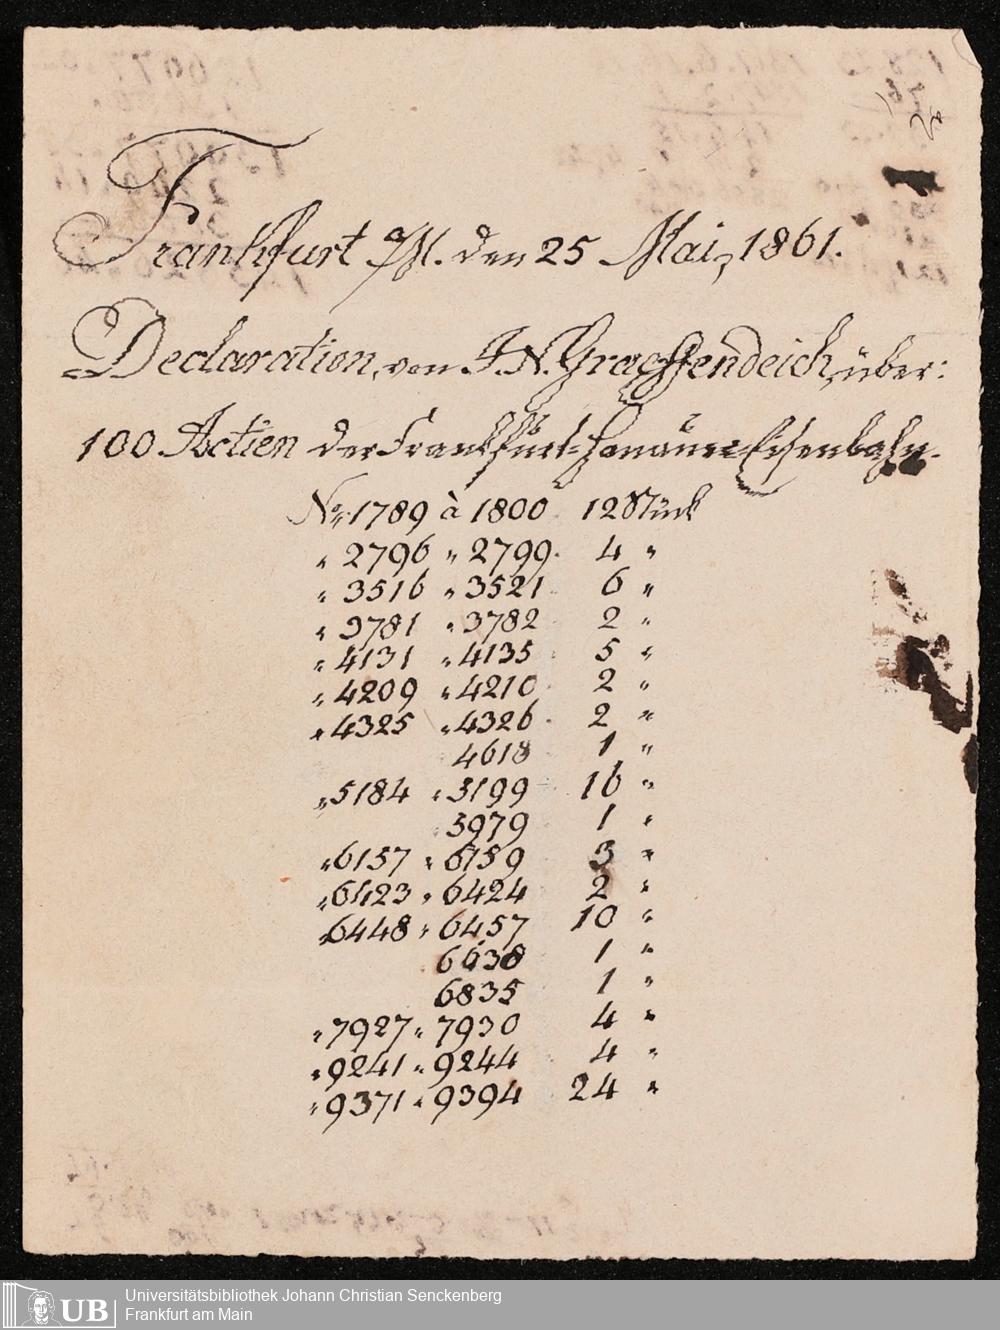 Frankfurt a/M. den 25 Mai, 1861.
Declaration, von J. N. Graeffendeich, über:
100 Actien der Frankfurt-Hanauer-Eisenbahn.
No. 1789 à 1800 12 Stück
" 2796 " 2799 4 "
" 3516 " 3521 6 "
" 3781 " 3782 2 "
" 4131 " 4135 5 "
" 4209 " 4210 2 "
" 4325 " 4326 2 "
4618 1 "
" 5184 " 5199 16 "
5979 1 "
" 6157 " 6159 3 "
" 6423 " 6424 2 "
" 6448 " 6457 10 "
6638 1 "
6835 1 "
" 7927 " 7930 4 "
" 9241 " 9244 4 "
" 9371 " 9394 24 "
UB
Universitätsbibliothek Johann Christian Senckenberg
Frankfurt am Main